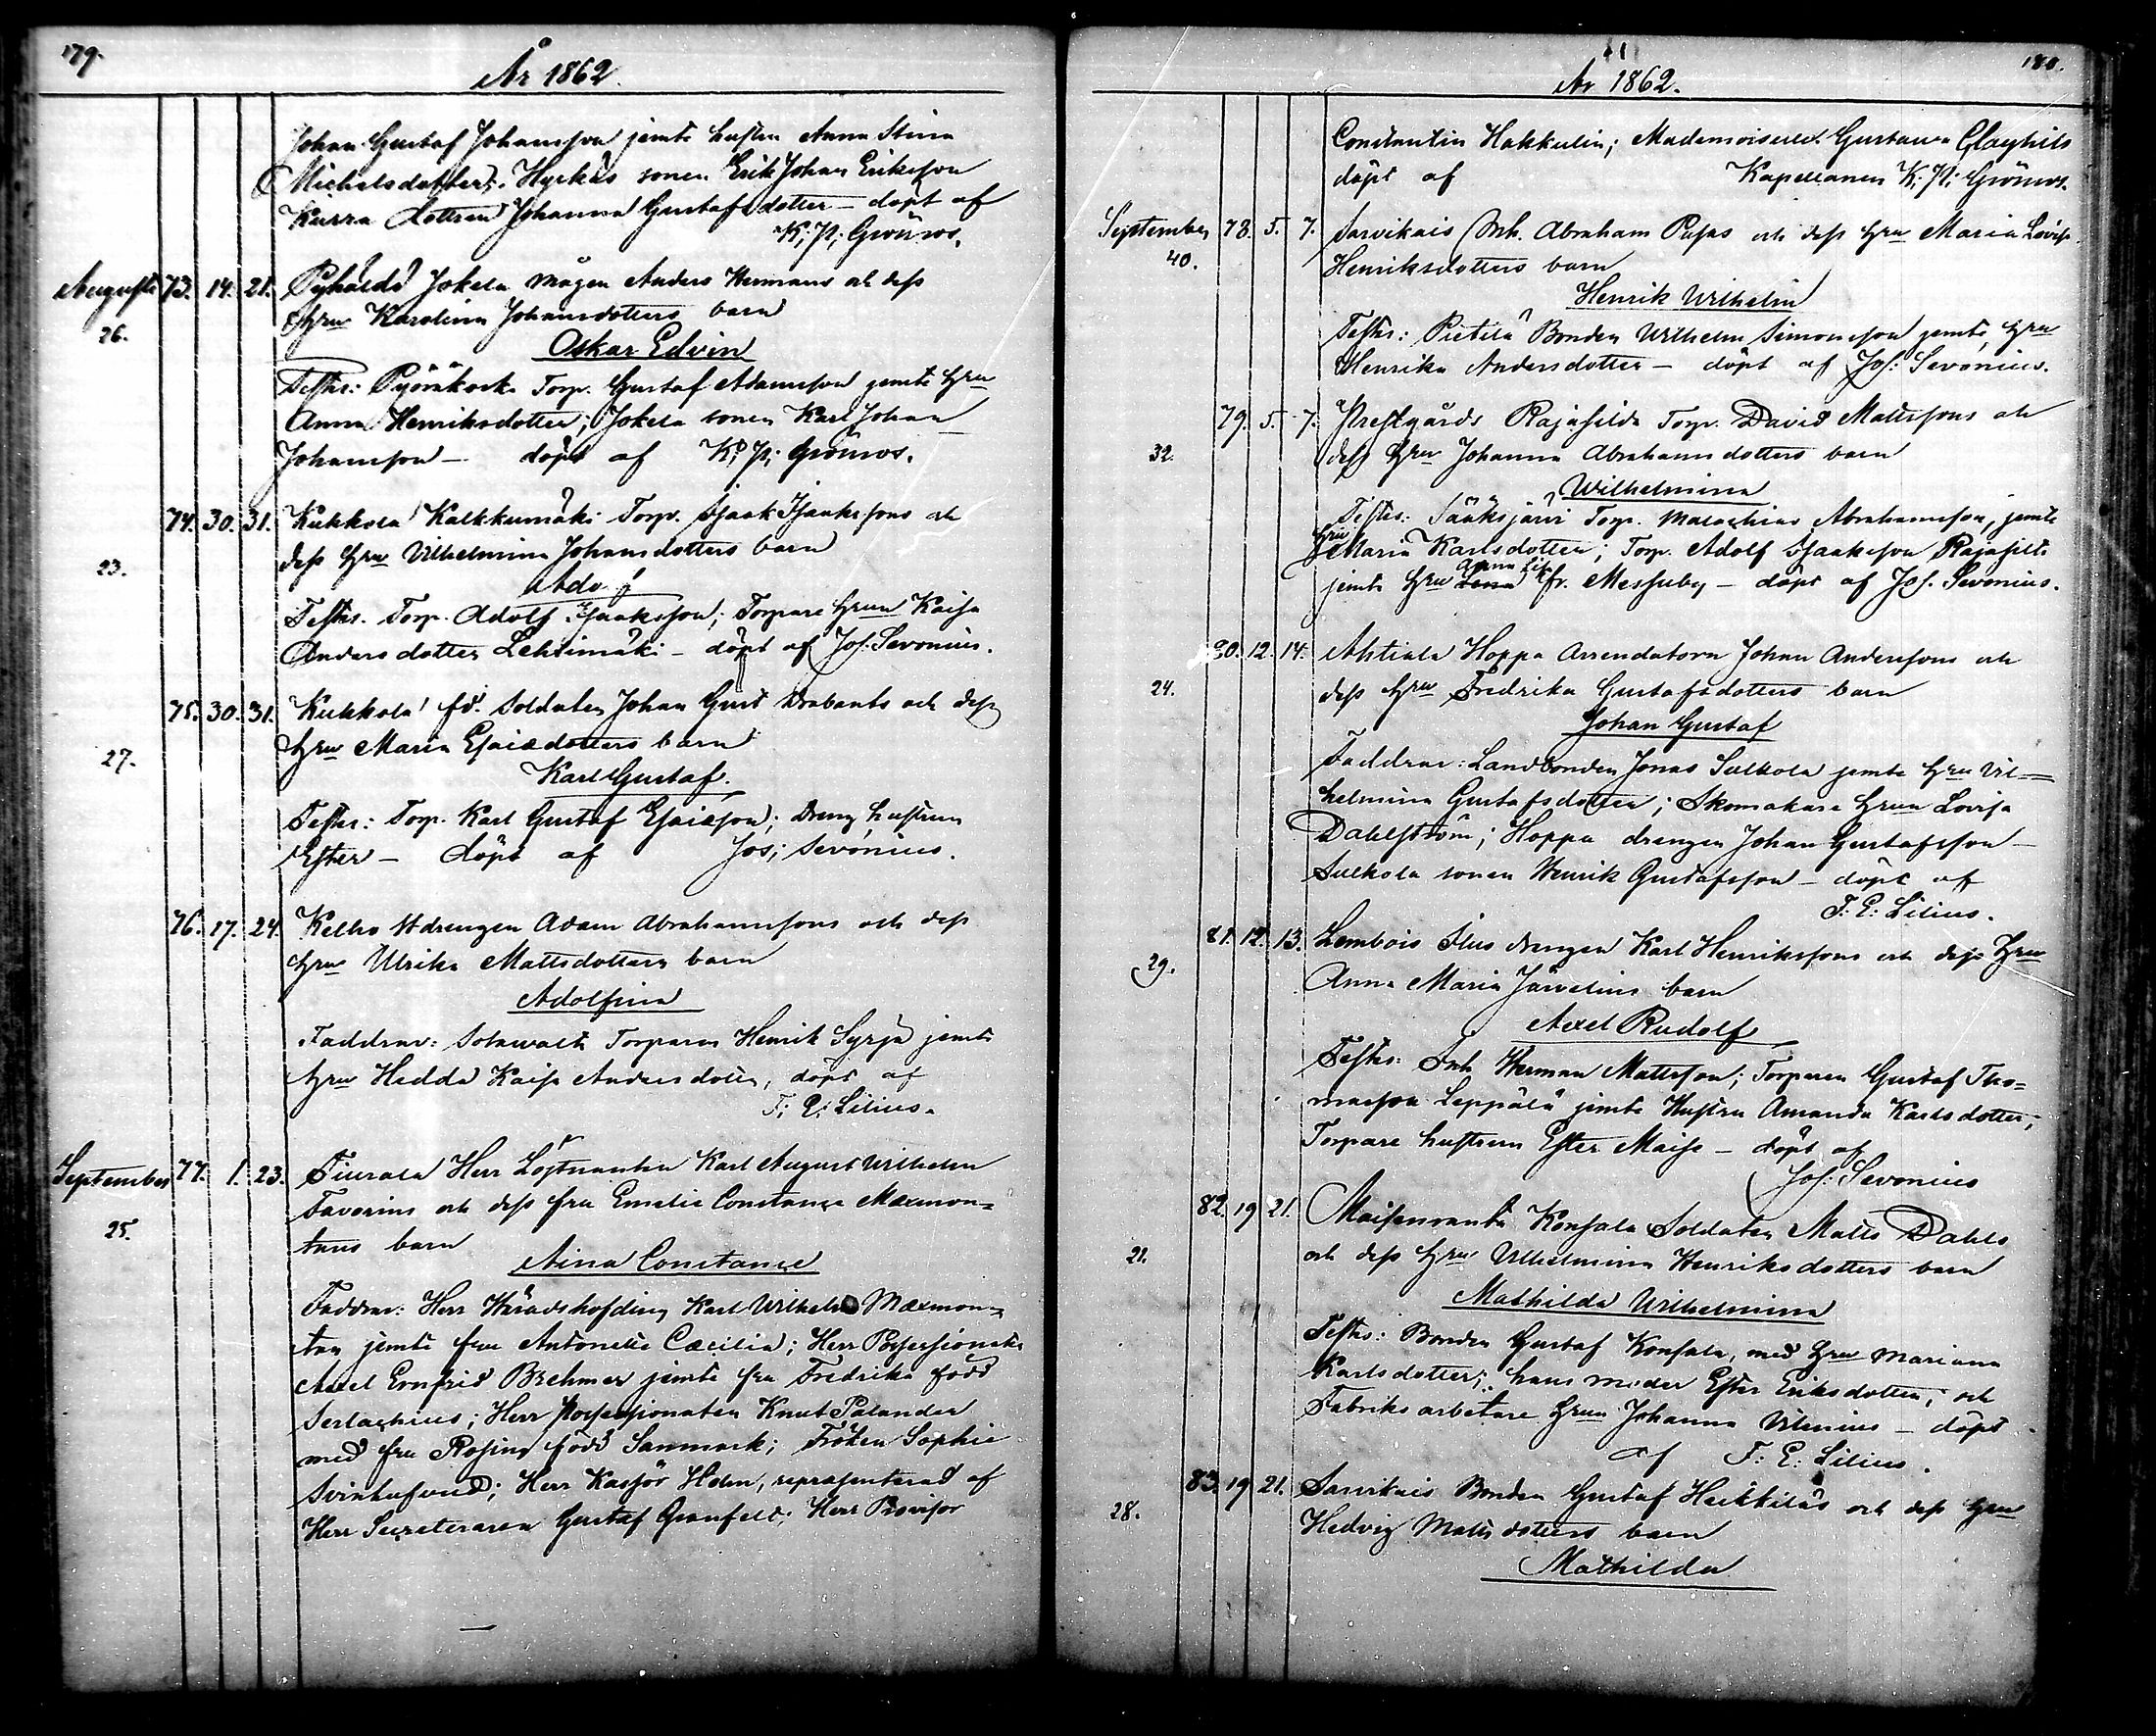 179.
År 1862.
Johan Gustaf Johansson jemte hustru Anna Stina
Michelsdotter; Hyrkäs sonen Erik Johan Eriksson
Kurra dottren Johanna Gustafsdotter — döpt af
K: P: Grönros.
Augusti 73. 14. 21. Pyhäldö Jokela mågen Anders Hermans och dess
26. hru Karolina Johansdotters barn
Oskar Edvin
Testes: Torp. Gustaf Adamsson jemte hru
Anna Henriksdotter; Jokela sonen Karl Johan
Johansson — döpt af K: P: Grönros.
74. 30. 31. Kukkola Kalkkumäki Torp. Isaak Isaakssons och
23. dess hru Vilhelmina Johansdotters barn
Ada
Testes. Torp. Adolf Isaaksson; Torpare hrun Kaisa
Andersdotter Lehtimäki — döpt af Jos. Sevonius.
75. 30. 31. Kukkola fd. Soldaten Johan Gust Drabants och dess
27. hru Maria Esaiædotters barn
Karl Gustaf.
Testes: Torp. Karl Gustaf Esaiæson; dreng hustrun
Ester — döpt af Jos: Sevonius.
76. 17. 24. Kelho drengen Adam Abrahamssons och dess
hru Ulrika Mattsdotters barn
Adolfina
Faddrar: Sotavalta Torparen Henrik Syrjä jemte
hru Hedda Kaisa Andersdotter, döpt af
F: E: Lilius.
September 77. 1. 23. Tiurala Herr Löjtnanten Karl August Wilhelm
25. Favorins och dess fru Emelie Constance Maxmon-
tans barn
Aina Constance
Faddrar: Herr Häradshöfding Karl Wilhelm Maxmon-
tan jemte fru Antonette Cæcilia; Herr Possessionaten
Axel Ernfrid Brehmer jemte fru Fredrika född
Serlachius; Herr Possessionaten Knut Palander
med fru Rosina född Sanmark; Fröken Sophie
Svinhufvud; Herr Kassör Hden, representerad af
Herr Secreteraren Gustaf Granfelt; Herr Provisor
180.
År 1862.
Constantin Hakkulin; Mademoiselle Gustava Clayhills
döpt af Kapellanen K: P: Grönros.
September 78. 5. 7. Sarvikais Inh. Abraham Papas och dess hru Maria Lovisa
40. Henriksdotters barn
Henrik Wilhelm
Testes: Pietilä Bonden Wilhelm Simonsson jemte hru
Henrika Andersdotter — döpt af Jos: Sevonius.
79. 5. 7. Prestgårds Rajasilda Torp. David Mattssons och
32. dess hru Johanna Abrahamsdotters barn
Wilhelmina
Testes: Sääksjärvi Torp. Malachias Abrahamsson, jemte
hru Maria Karlsdotter; Torp. Adolf Isaaksson Rajasilt
jemte hru Anna Lis fr. Messuby — döpt af Jos. Sevonius.
80. 12. 14. Ahtiala Hoppa Arrendatorn Johan Anderssons och
24. dess hru Fredrika Gustafsdotters barn
Johan Gustaf
Faddrar: Landbonden Jonas Sulkola jemte hru Vil-
helmina Gustafsdotter; Skomakare hrun Lovisa
Dahlström; Hoppa drengen Johan Gustafsson —
Sulkola sonen Henrik Gustafsson — döpt af
F. E: Lilius.
81. 12. 13. Lembois Ilus drengen Karl Henrikssons och dess hru
29. Anna Maria Järvelins barn
Axel Rudolf
Testes: Inh Herman Mattsson; Torparen Gustaf Tho-
masson Leppälä jemte Hustru Amanda Karlsdotter;
Torpare hustrun Ester Maisa — döpt af
Jos: Sevonius
82. 19 21. Moisenranta Konsala Soldaten Matts Dahls
21. och dess hru Vilhelmina Henriksdotters barn
Mathilda Wilhelmina
Testes: Bonden Gustaf Konsala, med hru Mariana
Karlsdotter; hans moder Ester Eriksdotter, och
Fabriks arbetare hrun Johanna Vilenius — döpt
af F: E: Lilius.
83. 19 21. Sarvikais Bonden Gustaf Heikkiläs och dess hru
28. Hedvig Mattsdotters barn
Mathilda